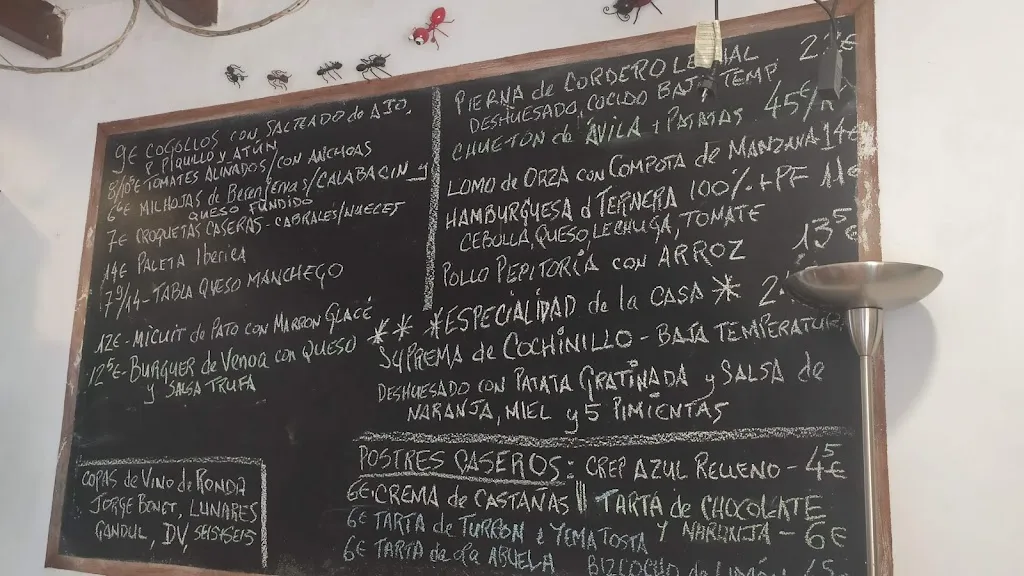 9€ COGOLLOS CON SALTEADO de AJO,
P. PIQUILLO y ATÚN
8/10€ TOMATES ALIÑADOS/CON ANCHOAS
6€ MILHOJAS de Berenjena s/CALABACIN y
QUESO FUNDIDO
7€ CROQUETAS CASERAS - CABRALES/NUECES
14€ PALETA IBERICA
7,9/14 - TABLA QUESO MANCHEGO
12€ - MICUIT de PATO CON MARRON GLACÉ
12⁵€ - BURGUER de VENAO CON QUESO
y SALSA TRUFA
COPAS de VINO de RONDA
JORGE BONET, LUNARES
GANDUL, DV, SEIS+SEIS
PIERNA de CORDERO
DESHUESADO, COCIDO BAJA TEMP
CHULETÓN de ÁVILA + PATATAS 45€/
LOMO de ORZA CON COMPOTA de MANZANA 14€
HAMBURGUESA d TERNERA 100% + PF 11€
CEBOLLA, QUESO, LECHUGA, TOMATE
POLLO PEPITORIA CON ARROZ 13⁵€
* * * ESPECIALIDAD de la CASA *
SUPREMA de COCHINILLO - BAJA TEMPERATURA
DESHUESADO CON PATATA GRATINADA y SALSA de
NARANJA, MIEL y 5 PIMIENTAS
POSTRES CASEROS: CREP AZUL RELLENO - 4⁵€
6€ CREMA de CASTAÑAS || TARTA de CHOCOLATE
Y NARANJA - 6€
6€ TARTA de TURRON e YEMA TOSTA
6€ TARTA de la ABUELA BIZCOCHO de LIMÓN